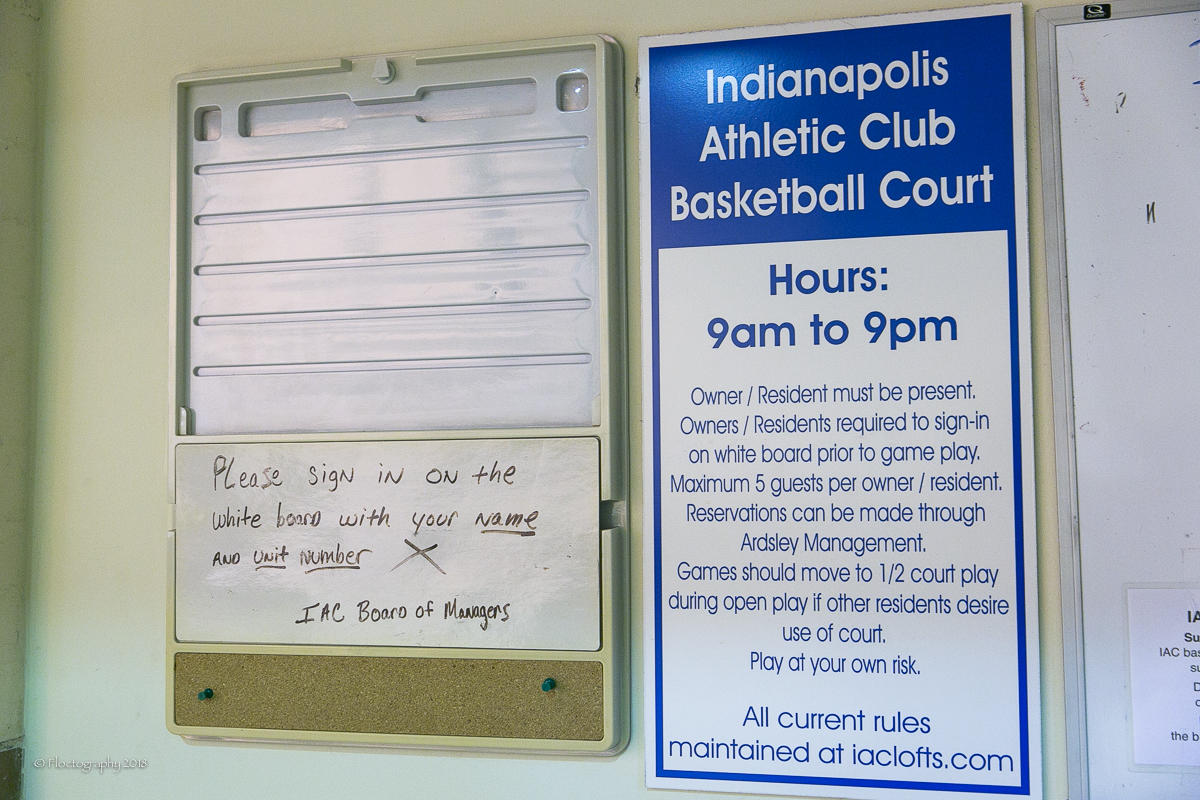 Please sign in on the
white board with your name
and unit number X
IAC Board of Managers
Indianapolis
Athletic Club
Basketball Court
Hours:
9am to 9pm
Owner / Resident must be present.
Owners / Residents required to sign-in
on white board prior to game play.
Maximum 5 guests per owner / resident.
Reservations can be made through
Ardsley Management.
Games should move to 1/2 court play
during open play if other residents desire
use of court.
Play at your own risk.
All current rules
maintained at iaclofts.com
Quartet
IA
Su
IAC bas
su
D
the b
© Floctography 2018